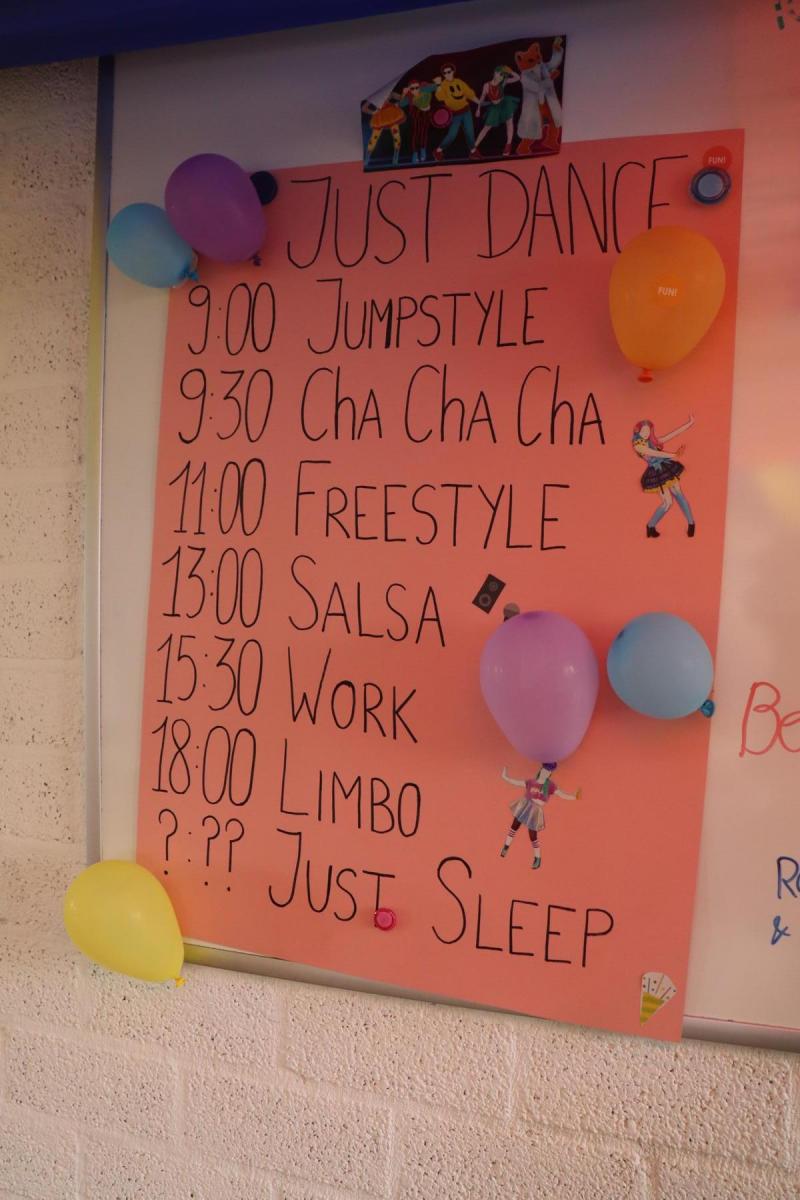 FUN!
JUST DANCE
FUN!
9:00 JUMPSTYLE
9:30 ChA ChA ChA
11:00 FREESTYLE
13:00 SALSA
15:30 WORK
18:00 LIMBO
?:?? JUST SLEEP
&